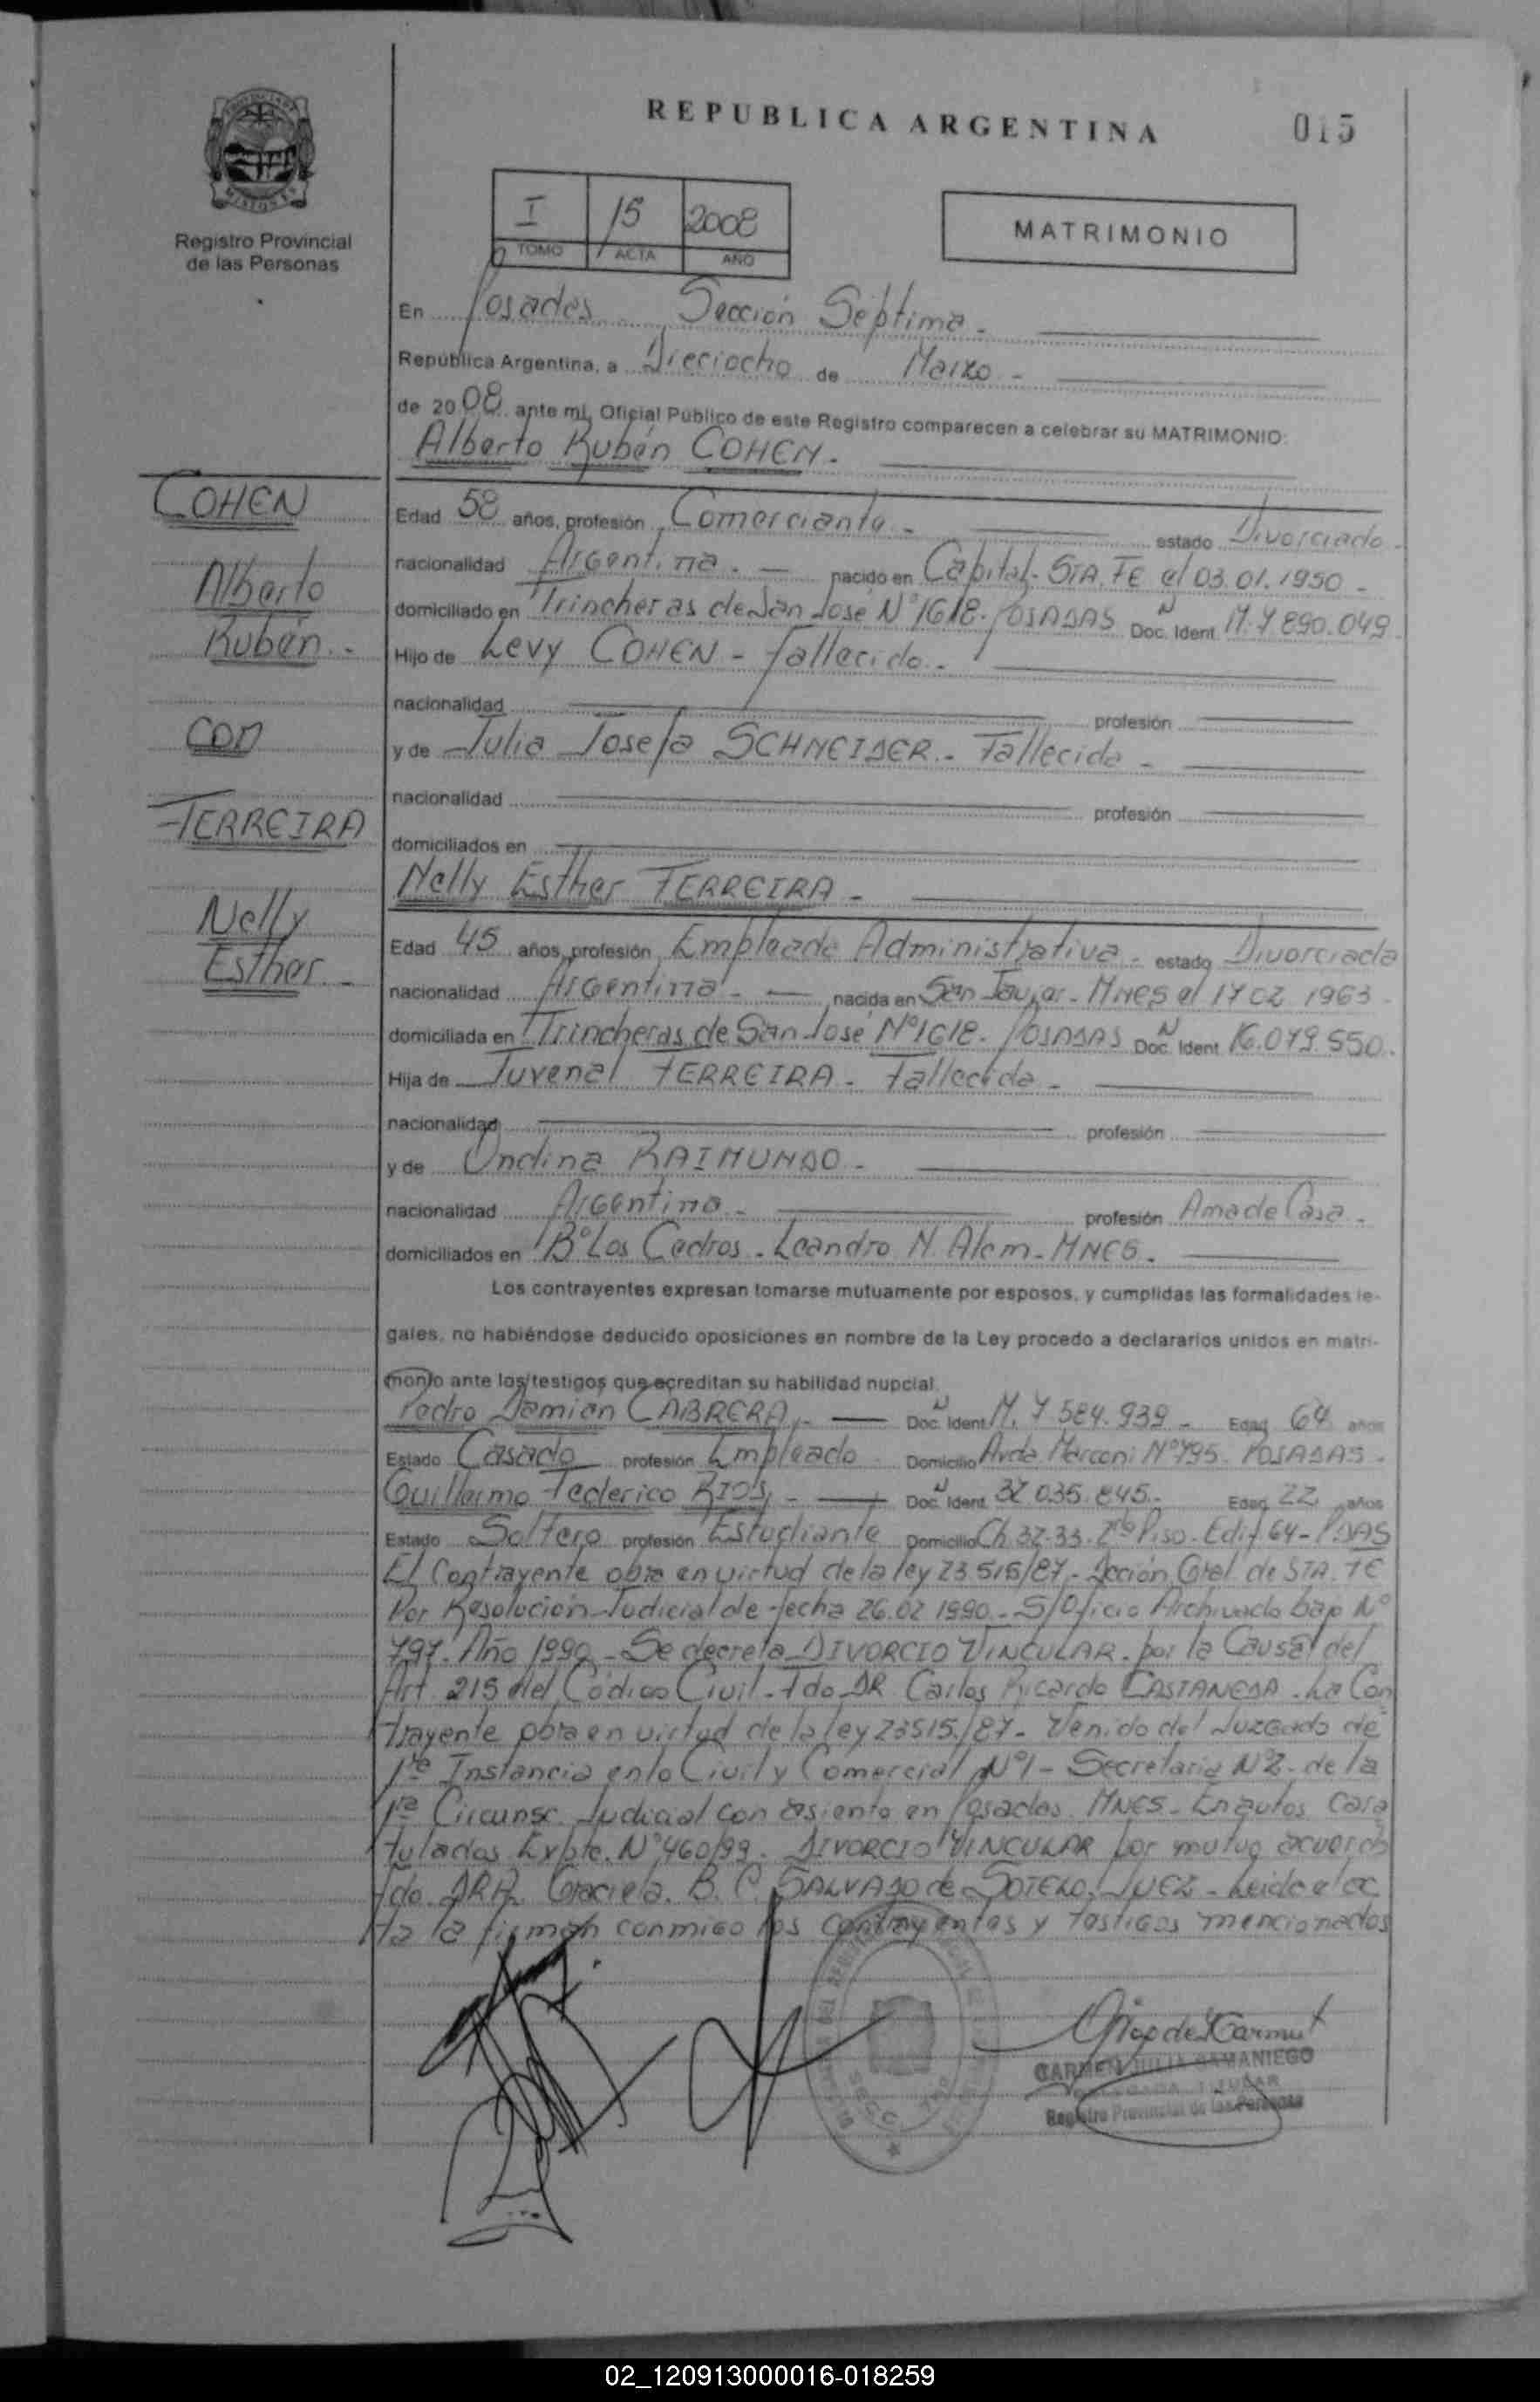 REPUBLICA ARGENTINA
015
PROVINCIA DE MISIONES
Registro Provincial
de las Personas
I 15 2008
TOMO ACTA AÑO
MATRIMONIO
En Posadas Sección Séptima.
República Argentina, a Dieciocho de Marzo -
de 2008 ante mí, Oficial Público de este Registro comparecen a celebrar su MATRIMONIO:
Alberto Rubén COHEN.
COHEN
Alberto
Rubén.-
con
FERREIRA
Nelly
Esther.-
Edad 58 años, profesión Comerciante - estado Divorciado
nacionalidad Argentina. - nacido en Capital-STA.FE el 03.01.1950 -
domiciliado en Trincheras de San José N°1618. POSADAS Doc. Ident M.7890.049
Hijo de Levy COHEN - Fallecido.-
nacionalidad profesión
y de Julia Josefa SCHNEIDER.- Fallecida -
nacionalidad profesión
domiciliados en
Nelly Esther FERREIRA -
Edad 45 años, profesión Empleada Administrativa - estado Divorciada
nacionalidad Argentina - nacida en San Javier - MNES el 17 02 1963
domiciliada en Trincheras de San José N°1618. POSADAS Doc. Ident 16.079.550.
Hija de Juvenal FERREIRA - Fallecido -
nacionalidad profesión
y de Ondina RAIMUNDO -
nacionalidad Argentina - profesión Ama de Casa -
domiciliados en B° Los Cedros - Leandro N. Alem - MNES -
Los contrayentes expresan tomarse mutuamente por esposos, y cumplidas las formalidades le-
gales, no habiéndose deducido oposiciones en nombre de la Ley procedo a declararlos unidos en matri-
monio ante los testigos que acreditan su habilidad nupcial.
Pedro Damian CABRERA.- Doc. Ident M. 7.584.939 - Edad 64 años
Estado Casado profesión Empleado Domicilio Avda. Marconi N°795- POSADAS -
Guillermo Federico RIOS - Doc. Ident 32 035.845.- Edad 22 años
Estado Soltero profesión Estudiante Domicilio Ch. 32-33. 2do Piso - Edif 64 - PDAS
El Contrayente obra en virtud de la ley 23.515/87.- Dcción. Gral. de STA. FE
Por Resolución Judicial de fecha 26.02 1990 - S/Oficio Archivado bajo N°
797. Año 1990 - Se decreta DIVORCIO VINCULAR. por la Causal del
Art. 215 del Código Civil - Fdo. DR. Carlos Ricardo CASTANEDA. La Con
trayente obra en virtud de la ley 23515./87- Venido del Juzgado de
1ra Instancia en lo Civil y Comercial N°1 - Secretaria N°2- de la
1ra Circunsc. Judicial con asiento en Posadas. MNES- En autos cara
tulados Expte. N°460/99. DIVORCIO VINCULAR por mutuo acuerdo
fdo. DRA. Graciela. B. C. SALVADO de SOTELO. JUEZ - Leida el ac
ta la firman conmigo los contrayentes y testigos mencionados
CARMEN JULIA SAMANIEGO
DELEGADA TITULAR
Registro Provincial de las Personas
02_120913000016-018259